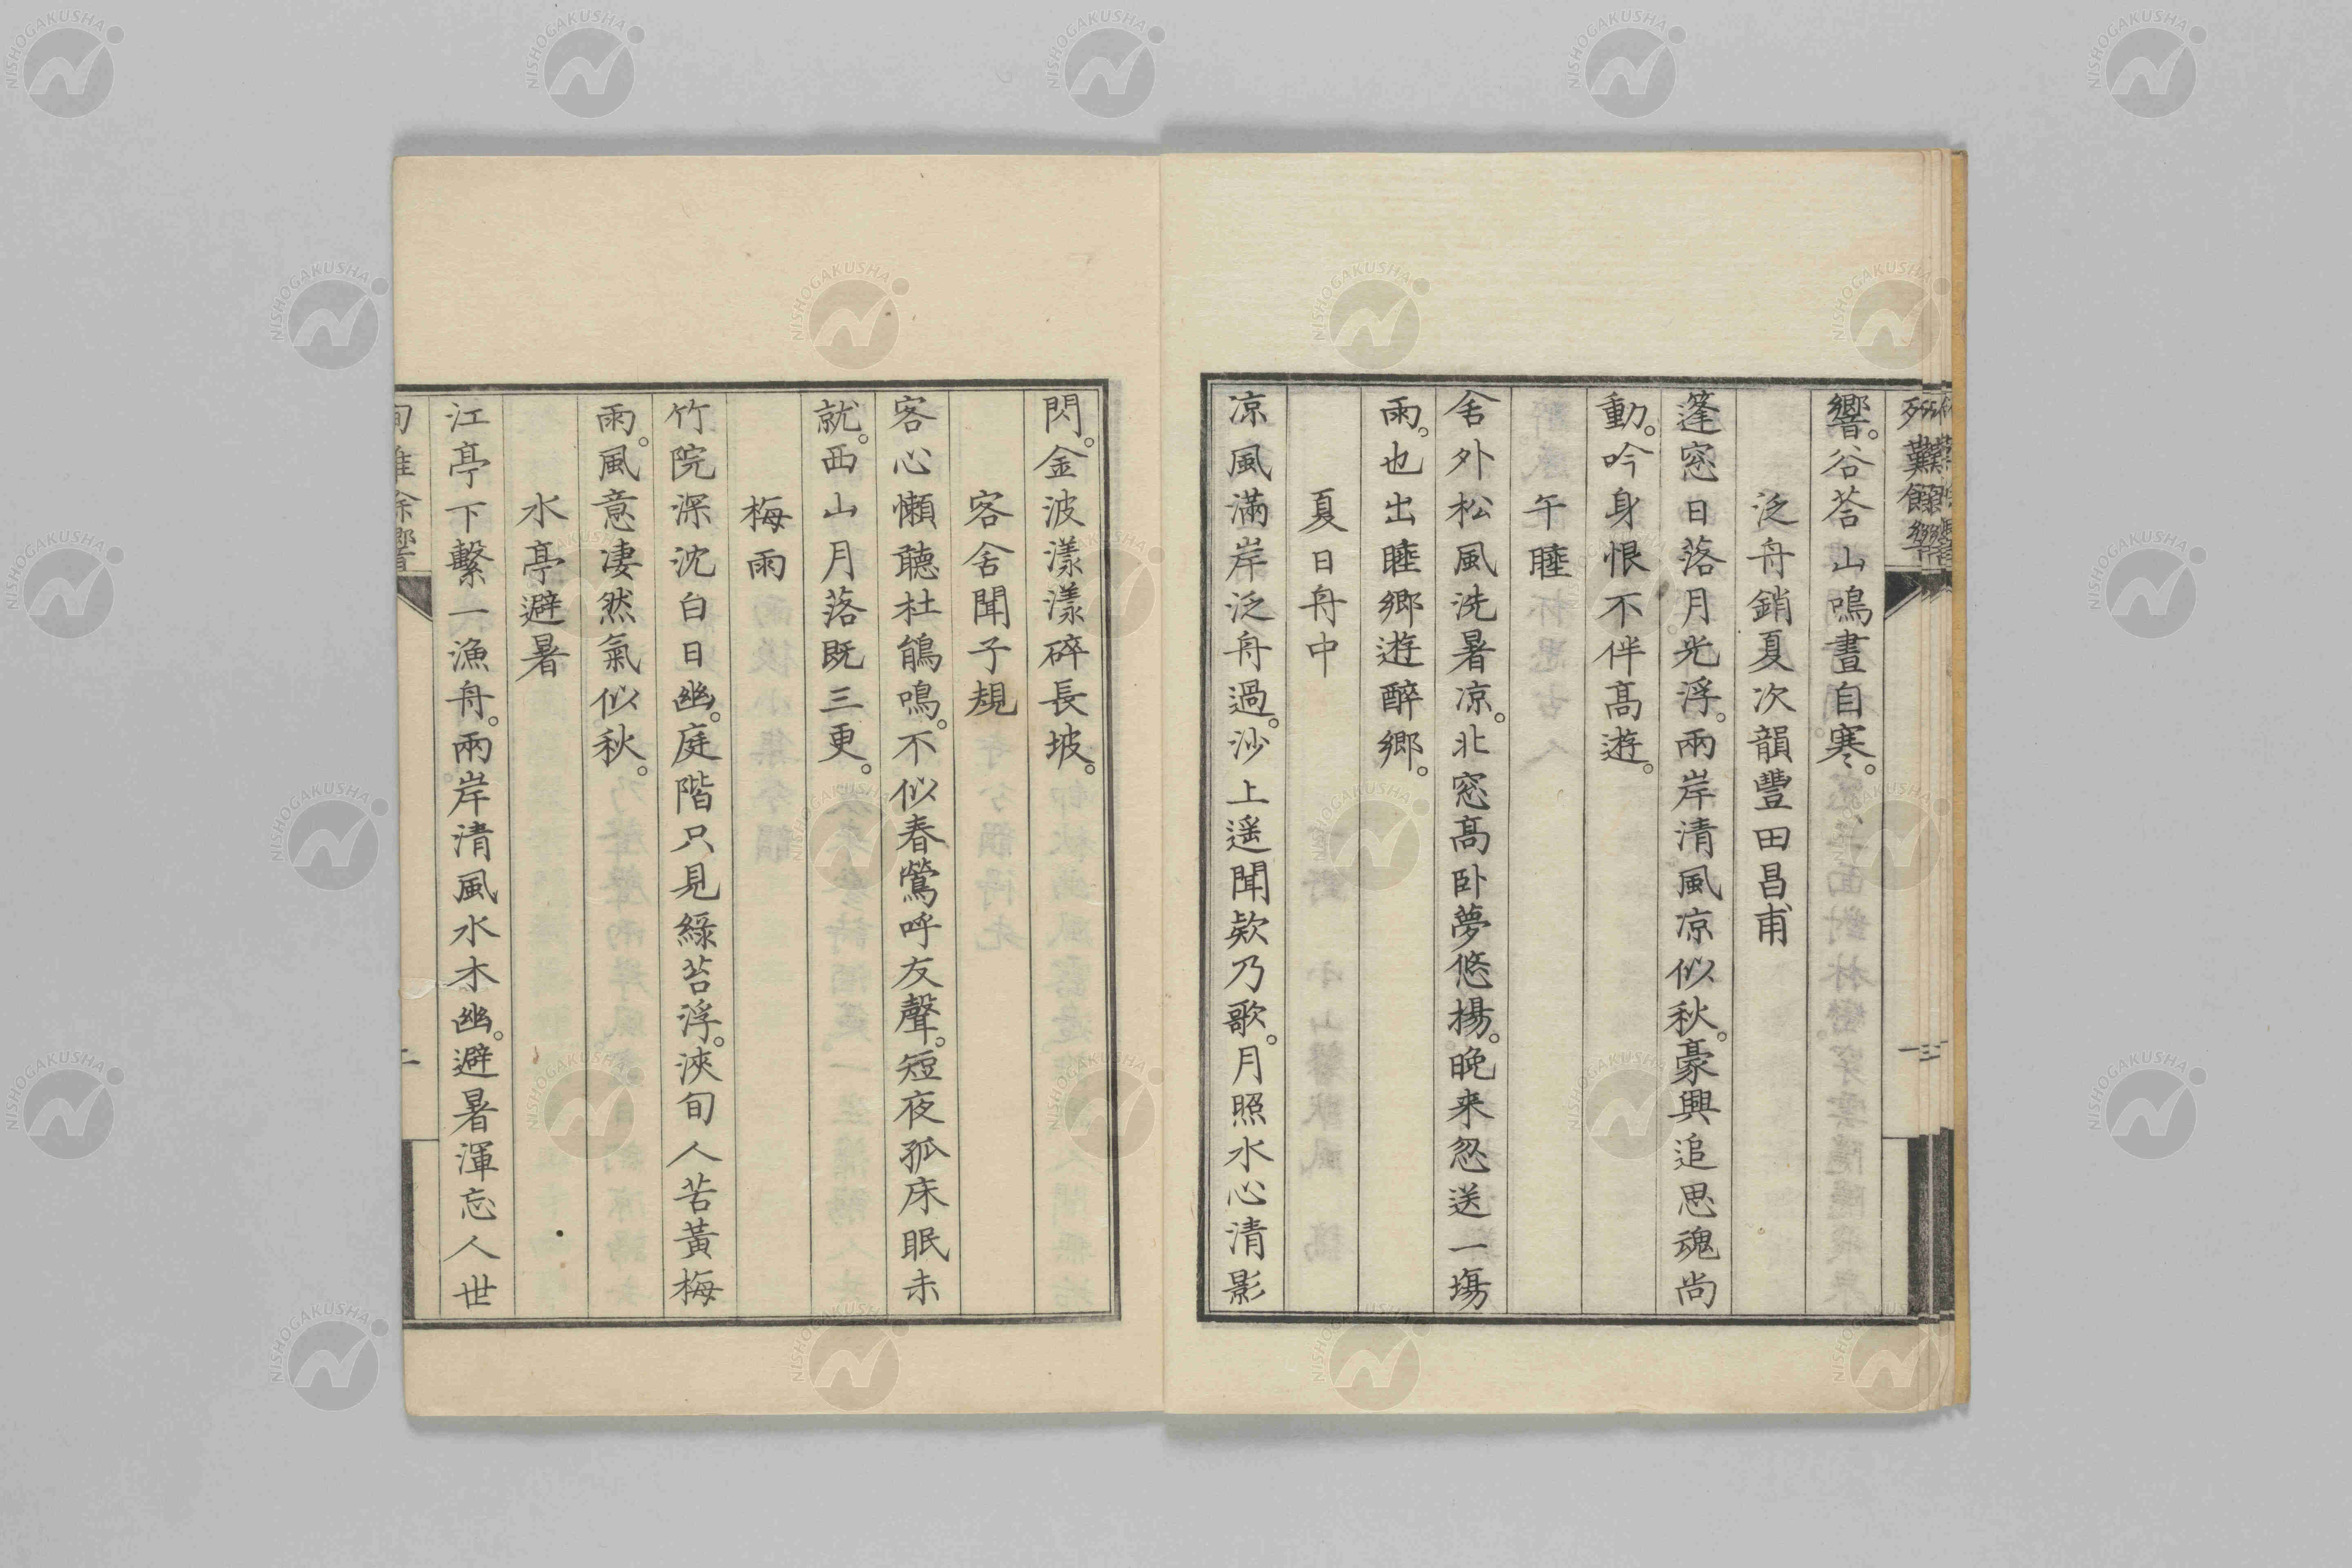 響。谷荅山鳴晝自寒。
泛舟銷夏次韻豐田昌甫
篷窓日落月光浮。兩岸清風凉似秋。豪興追思魂尚
動。吟身恨不伴髙遊。
午睡
舍外松風洗暑凉。北窓髙卧夢悠揚。晩来忽送一塲
雨。也出睡郷遊醉郷。
夏日舟中
凉風滿岸泛舟過。沙上遥聞欵乃歌。月照水心清影
閃。金波漾漾碎長坡。
客舍聞子規
客心懶聽杜鵑鳴。不似春鶯呼友聲。短夜孤床眠未
就。西山月落既三更。
梅雨
竹院深沈白日幽。庭階只見綠苔浮。浹旬人苦黃梅
雨。風意凄然氣似秋。
水亭避暑
江亭下繫一漁舟。兩岸清風水木幽。避暑渾忘人世
NISHOGAKUSHA